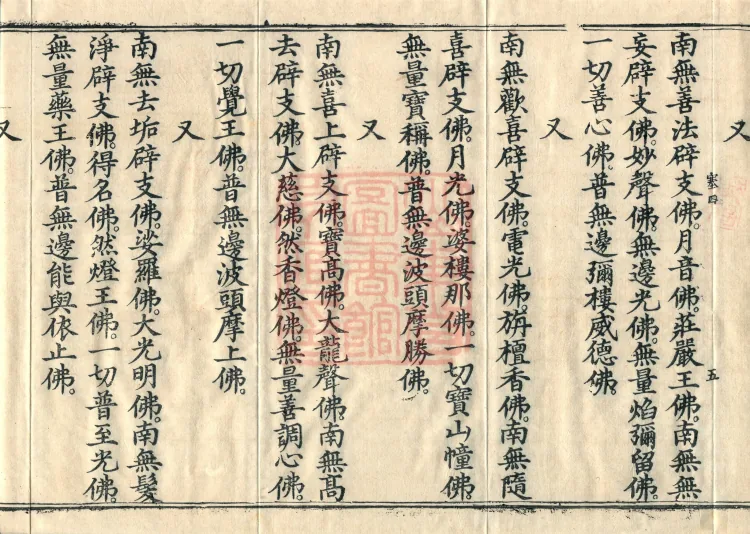 又
南無善法辟支佛。月音佛。莊嚴王佛。南無無
妄辟支佛。妙聲佛。無邊光佛。無量焰彌留佛。
一切善心佛。普無邊彌樓威德佛。
又
南無歡喜辟支佛。電光佛。旃檀香佛。南無隨
喜辟支佛。月光佛。婆樓那佛。一切寶山幢佛。
無量寶稱佛。普無邊波頭摩勝佛。
又
南無喜上辟支佛。寶高佛。大龍聲佛。南無髙
去辟支佛。大慈佛。然香燈佛。無量善調心佛。
一切覺王佛。普無邊波頭摩上佛。
又
南無去垢辟支佛。娑羅佛。大光明佛。南無髮
淨辟支佛。得名佛。然燈王佛。一切普至光佛。
無量藥王佛。普無邊能與依止佛。
又
四
五